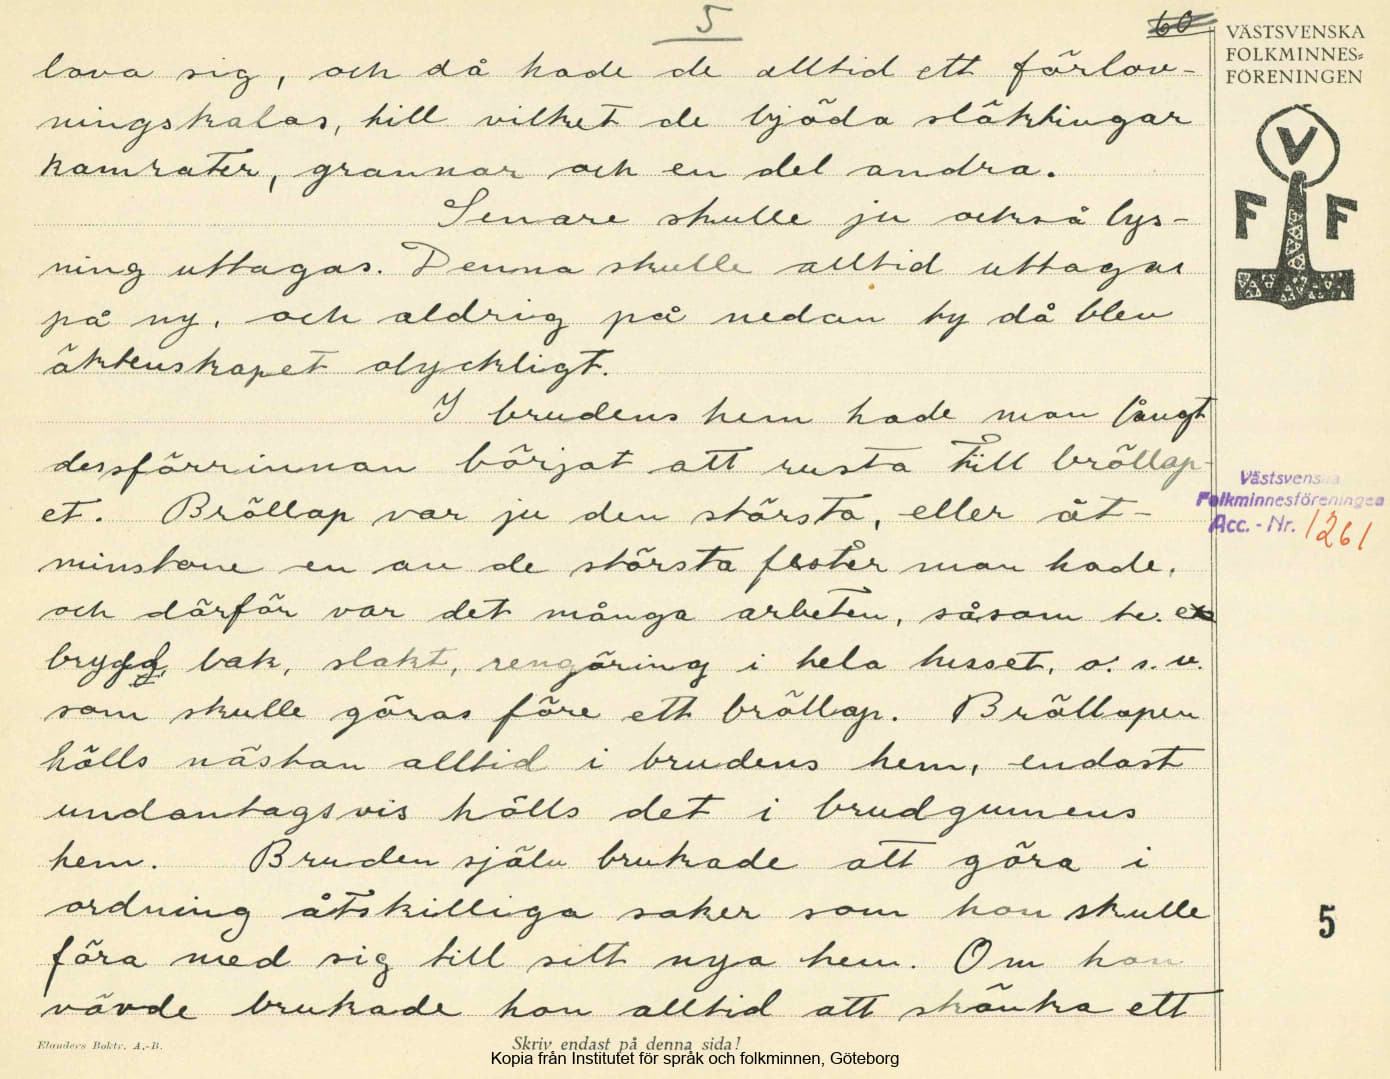 5
60
VÄSTSVENSKA
FOLKMINNES=
FÖRENINGEN
V
F F
lova sig, och då hade de alltid ett förlov-
ningskalas, till vilket de bjöda släktingar
kamrater, grannar och en del andra.
Senare skulle ju också lys-
ning uttagas. Denna skulle alltid uttagas
på ny, och aldrig på nedan ty då blev
äktenskapet olyckligt.
I brudens hem hade man långt
dessförrinnan börjat att rusta till bröllap-
et. Bröllap var ju den största, eller åt-
minstone en av de största fester man hade,
och därför var det många arbeten, såsom te. ex
brygd, bak, slakt, rengöring i hela husset, o. s. v.
som skulle göras före ett bröllap. Bröllapen
hölls nästan alltid i brudens hem, endast
undantagsvis hölls det i brudgumens
hem. Bruden själv brukade att göra i
ordning åtskilliga saker som hon skulle
föra med sig till sitt nya hem. Om hon
vävde brukade hon alltid att skänka ett
Västsvenska
Folkminnesföreningen
Acc. - Nr. 1261
5
Elanders Boktr. A.-B.
Skriv endast på denna sida!
Kopia från Institutet för språk och folkminnen, Göteborg